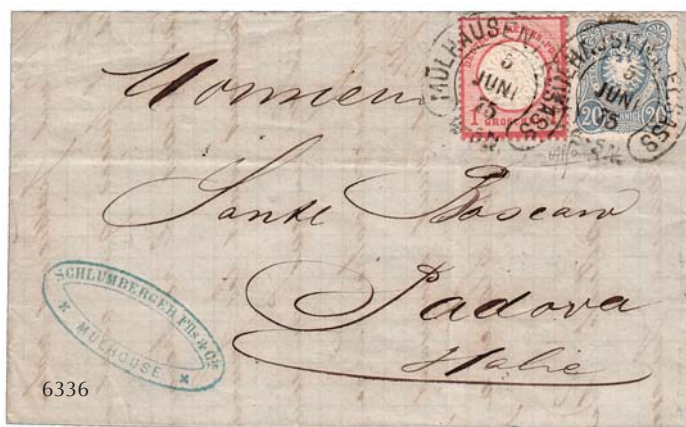 MÜLHAUSEN I. ELSASS
5
JUNI
75
1 GROSCHEN
MÜLHAUSEN I. ELSASS
5
JUNI
75
20 PFENNIGE 20
Monsieur
Sante Boscaro
Padova
Italie
SCHLUMBERGER Fils & Cie
* MULHOUSE *
6336